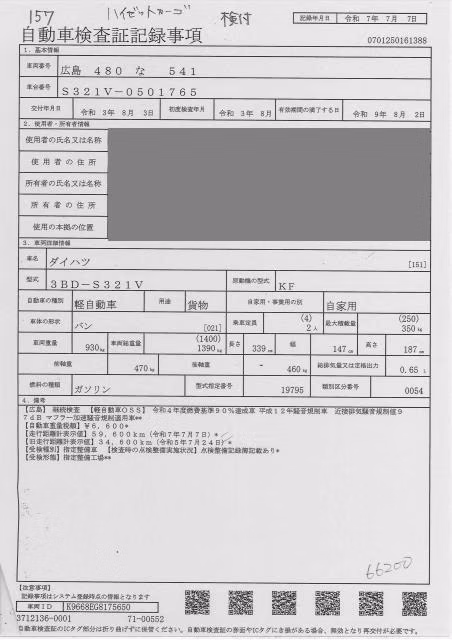 157 ハイゼットカーゴ 検付
記録年月日 令和 7年 7月 7日
自動車検査証記録事項 0701250161388
1. 基本情報
車両番号 広島 480 な 541
車台番号 S321V-0501765
交付年月日 令和 3年 8月 3日 初度検査年月 令和 3年 8月 有効期間の満了する日 令和 9年 8月 2日
2. 使用者・所有者情報
使用者の氏名又は名称
使用者の住所
所有者の氏名又は名称
所有者の住所
使用の本拠の位置
3. 車両詳細情報
車名 ダイハツ [151]
型式 3BD-S321V 原動機の型式 KF
自動車の種別 軽自動車 用途 貨物 自家用・事業用の別 自家用
車体の形状 バン [021] 乗車定員 (4) 2人 最大積載量 (250) 350kg
車両重量 930kg 車両総重量 (1400) 1390kg 長さ 339cm 幅 147cm 高さ 187cm
前前軸重 470kg 後後軸重 - 460kg 総排気量又は定格出力 0.65L
燃料の種類 ガソリン 型式指定番号 19795 類別区分番号 0054
4. 備考
【広島】 継続検査 【軽自動車OSS】 令和4年度燃費基準90%達成車 平成12年騒音規制車 近接排気騒音規制値9
7dB マフラー加速騒音規制適用車**
【自動車重量税額】¥6,600*
【走行距離計表示値】59,600km(令和7年7月7日)*
【旧走行距離計表示値】34,600km(令和5年7月24日)*
【受検種別】指定整備車 【検査時の点検整備実施状況】点検整備記録簿記載あり*
【受検形態】指定整備工場**
66200
【注意事項】
記録事項はシステム登録時点の情報となります
車両ID K9668EG8175650
3712136-0001 71-00552
自動車検査証のICタグ部分は折り曲げずに保管ください。自動車検査証の券面やICタグにき損がある場合、無効となり再交付が必要です。